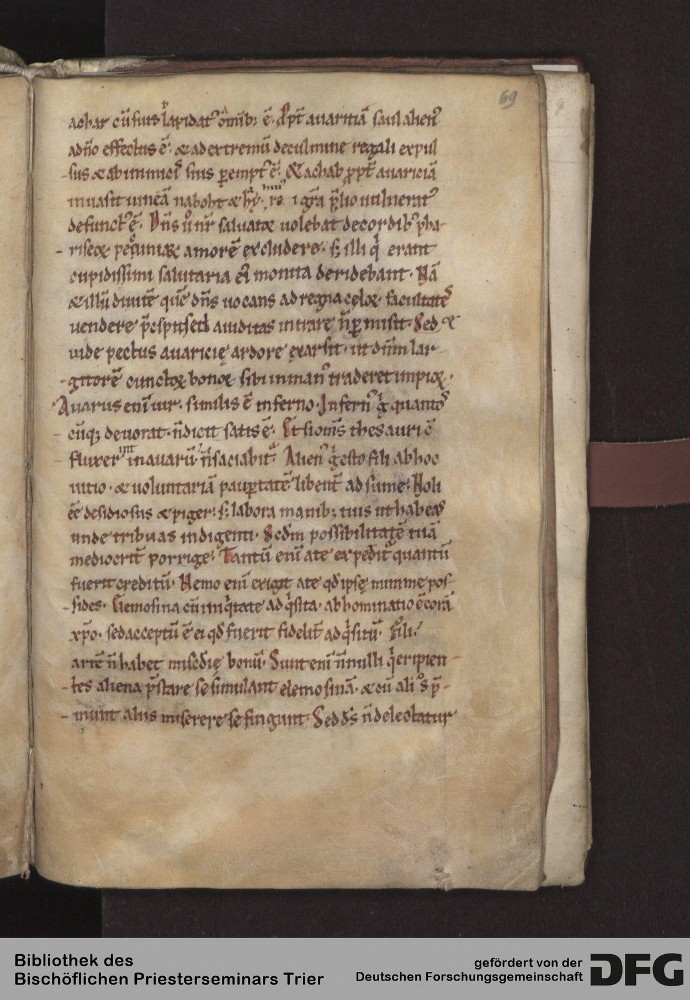 69
achar cū suis lapidatꝰ oīnib; ē. Ppt̄ auaritiā saul alienꝰ
adn̄o effectus ē. & ad extremū deculmine regali expul
sus & ab inimicis suis p̱emptꝰ ē. & achab ppt̄ auariciā
inuasit uineā naboht &
defunctꝰ ē. Dn̄s ū nr̄ saluatꝛ uolebat decordibꝰ pha
riseoꝝ pecuniaꝝ amorē excludere. s; illi q̇ erant
cupidissimi salutaria ei monita deridebant. Nā
& illū diuitē quē dn̄s uocans ad regna celoꝝ facultatēs
uendere auiditas intrare n̄ p̱misit. Sed &
uide pectus auaricię ardore exarsit. ut dn̄m lar
gitorē cunctoꝝ bonoꝝ sibi in manꝰ traderet impioꝝ.
Auarus enī uir. similis ē inferno. Infernꝰ g̊ quantos
cūq; deuorat. n̄ dicit satis ē. Et si om̄s thesauri cō
fluxerint in auarū n̄ saciabit᷑. Alienꝰ g̊ esto fili ab hoc
uitio. & uoluntariā paup̱tatē libent̄ adsume. Noli
ēē desidiosus & piger. s; labora manib; tuis ut habeas
unde tribuas indigenti. Scd̄m possibilitatē tuā
mediocrit̄ porrige. Tantū enī a te expedit᷑ quantū
fuerit creditū. Nemo enī exigit a te qd̄ ipse minime pos
sides. Elemosina cū iniq̇tate adq̇sita. abhominatio ē corā
xp̄o. sed acceptū ē ei qd̄ fuerit fidelit̄ adq̇sitū. Fili.
n̄ habet misc̄dię bonū. Sunt enī n̄nulli q̇ eripien
tes aliena p̄stare se simulant elemosinā. & cū aliꝰs p̄
munt aliis miserere se fingunt. Sed ds̄ n̄ delectatur
Bibliothek des
Bischöflichen Priesterseminars Trier
gefördert von der
Deutschen Forschungsgemeinschaft
DFG